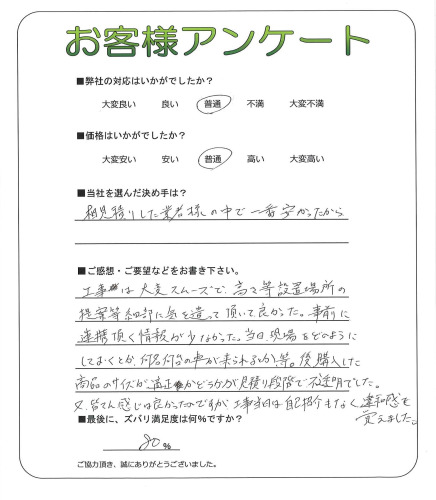 お客様アンケート
■弊社の対応はいかがでしたか？
大変良い 良い 普通 不満 大変不満
■価格はいかがでしたか？
大変安い 安い 普通 高い 大変高い
■当社を選んだ決め手は？
相見積りした業者様の中で一番安かったから
■ご感想・ご要望などをお書き下さい。
工事は大変スムーズで、高さ等設置場所の
提案等細部に気を遣って頂いて良かった。事前に
連携頂く情報が少なかった。当日、現場をどのように
しておくとか、何名何台の車が来られるとか、等。後購入した
商品のサイズが適正かどうかが見積り段階で不透明でした。
又、皆さん感じは良かったのですが工事当日は自己紹介もなく違和感を
覚えました。
■最後に、ズバリ満足度は何％ですか？
80 %
ご協力頂き、誠にありがとうございました。